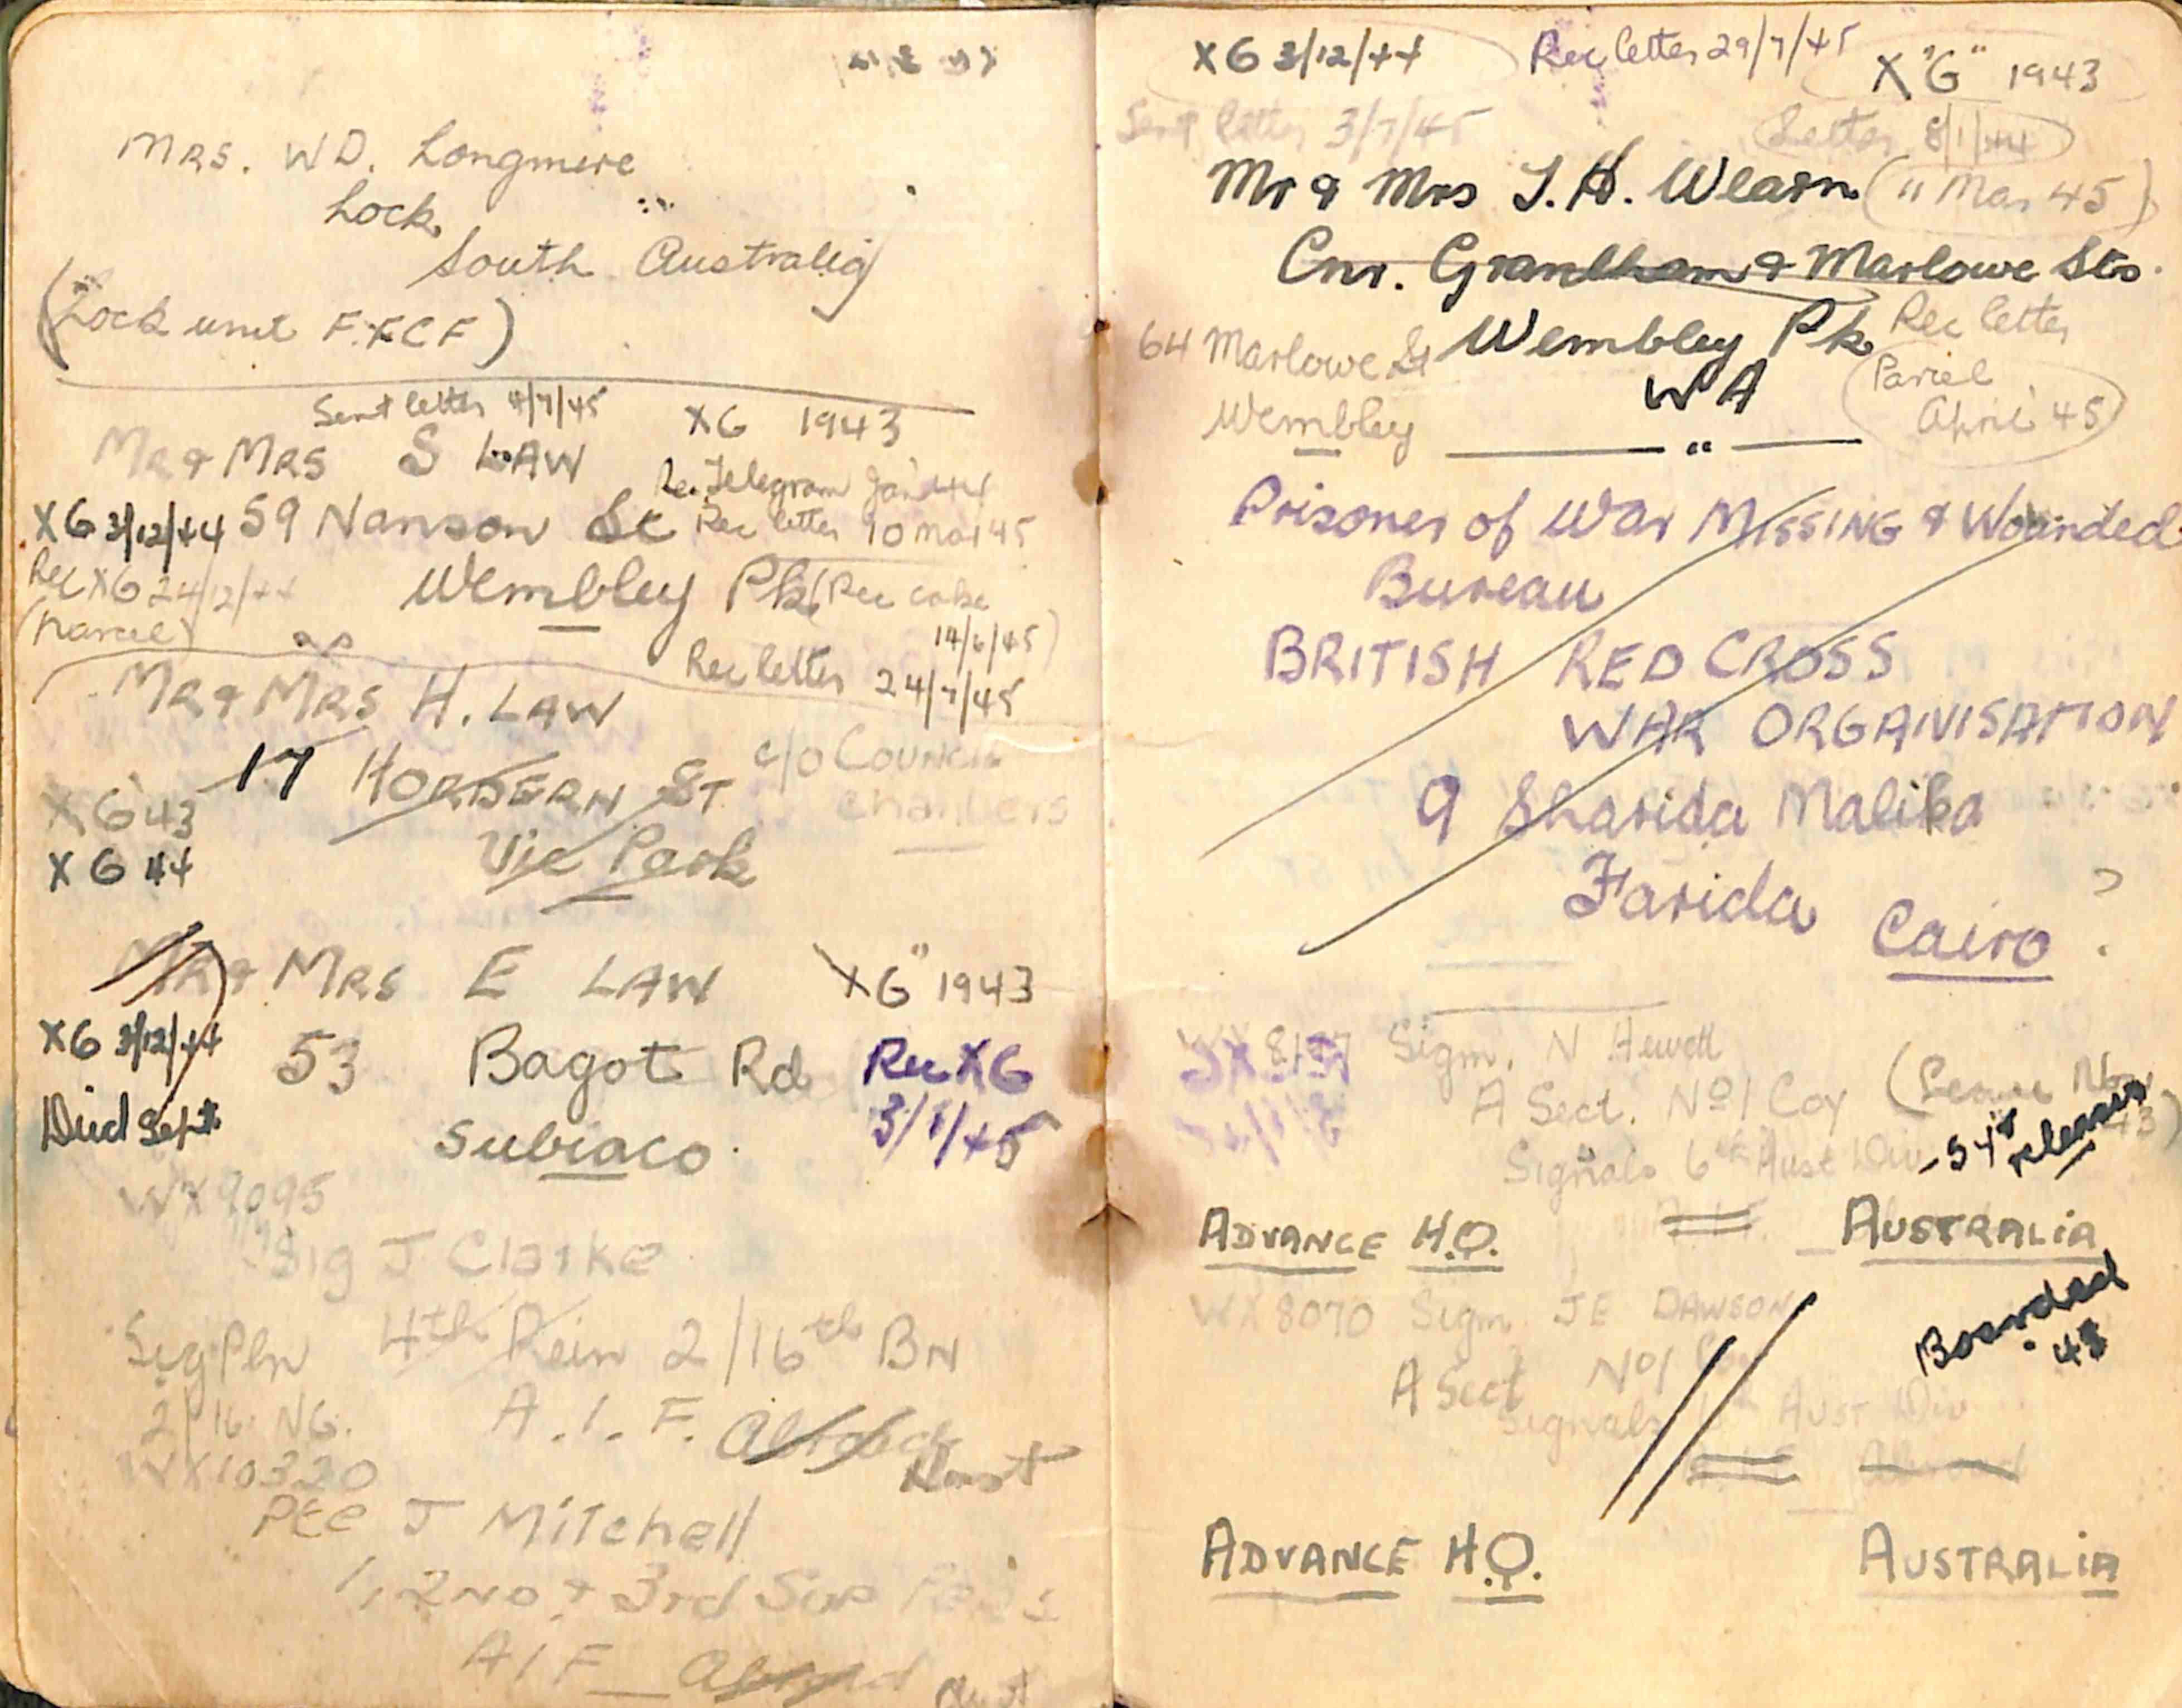 MRS. WD. Longmire
Lock,
South Australia
(Lock unit F.F.C.F)
Sent letter 4/7/45 XG 1943
MR & MRS S LAW
Rec Telegram Jan 44
XG 3/12/44 59 Nanson St Rec letter 10 Mar 45
Rec XG 24/12/44 Wembley Pk (Rec cake
(Parcel) 14/6/45)
Rec letter 24/7/45
MR & MRS H. LAW
17 HORDERN ST c/o COUNCIL
XG 43 Chambers
XG 44 Vic Park
MR & MRS E LAW X G" 1943
XG 3/12/44 53 Bagot Rd Rec XG
Died Sept Subiaco. 3/1/45
WX 9095
Sig J Clarke
Sig Pln 4th Rein 2/16th BN
2/16 NG. A.I.F. Abroad
Aust
WX10320
Pte J Mitchell
1, 2ND & 3rd Sup
AIF Abroad Aust
XG 3/12/44 Rec letter 29/7/45 X "G" 1943
Sent letter 3/7/45 Letter 8/1/44
Mr & Mrs J. H. Wearn (" Mar 45)
Cnr. Grantham & Marlowe Sts.
64 Marlowe St Wembley Pk Rec letter
Wembley WA Parcel
April 45
"
Prisoner of War MISSING & Wounded
Bureau
BRITISH RED CROSS
WAR ORGANISATION
9 Sharida Malika
Farida Cairo ?
Sigm. N Hewett
A Sect. No 1 Coy (Leave Nov
43)
Signals 6th Aust Div
release
ADVANCE H.Q. AUSTRALIA
WX 8070 Sigm JE DAWSON
Boarded
43
A Sect No 1 Coy
Signals Aust Div
ADVANCE H.Q. AUSTRALIA